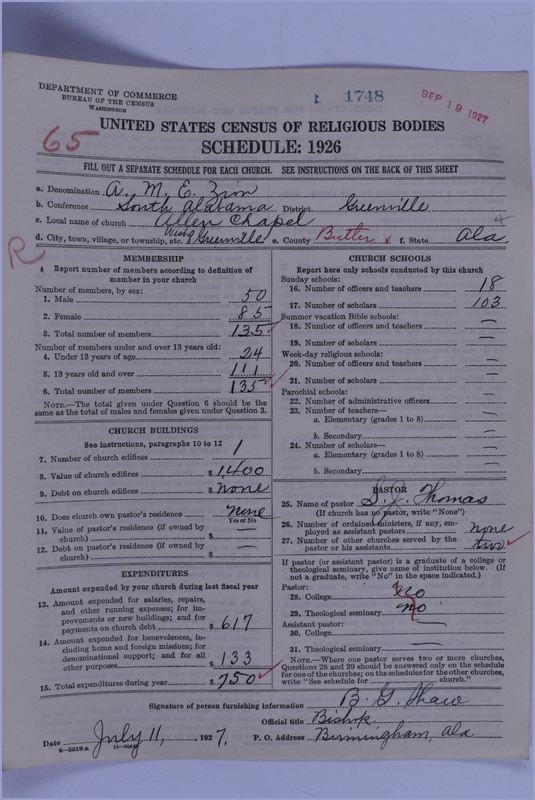 DEPARTMENT OF COMMERCE
BUREAU OF THE CENSUS
WASHINGTON
1748
SEP 19 1927
65
UNITED STATES CENSUS OF RELIGIOUS BODIES
SCHEDULE: 1926
FILL OUT A SEPARATE SCHEDULE FOR EACH CHURCH. SEE INSTRUCTIONS ON THE BACK OF THIS SHEET
a. Denomination A. M. E. Zion
b. Conference South Alabama District Greenville
c. Local name of church Allen Chapel
d. City, town, village, or township, etc. Greenville e. County Butler f. State Ala.
R
MEMBERSHIP
Report number of members according to definition of
member in your church
Number of members, by sex:
1. Male 50
2. Female 85
3. Total number of members 135
Number of members under and over 13 years old:
4. Under 13 years of age 24
5. 13 years old and over 111
6. Total number of members 135
NOTE.—The total given under Question 6 should be the
same as the total of males and females given under Question 3.
CHURCH BUILDINGS
See instructions, paragraphs 10 to 12
7. Number of church edifices 1
8. Value of church edifices $ 1,400
9. Debt on church edifices $ none
10. Does church own pastor's residence none
Yes or No
11. Value of pastor's residence (if owned by
church) $ —
12. Debt on pastor's residence (if owned by
church) $ —
EXPENDITURES
Amount expended by your church during last fiscal year
13. Amount expended for salaries, repairs,
and other running expenses; for im-
provements or new buildings; and for
payments on church debt $ 617
14. Amount expended for benevolences, in-
cluding home and foreign missions; for
denominational support; and for all
other purposes $ 133
15. Total expenditures during year $ 750
CHURCH SCHOOLS
Report here only schools conducted by this church
Sunday schools:
16. Number of officers and teachers 18
17. Number of scholars 103
Summer vacation Bible schools:
18. Number of officers and teachers —
19. Number of scholars —
Week-day religious schools:
20. Number of officers and teachers —
21. Number of scholars —
Parochial schools:
22. Number of administrative officers —
23. Number of teachers—
a. Elementary (grades 1 to 8) —
b. Secondary —
24. Number of scholars—
a. Elementary (grades 1 to 8) —
b. Secondary —
PASTOR
25. Name of pastor Thomas
(If church has no pastor, write "None")
26. Number of ordained ministers, if any, em-
ployed as assistant pastors none
27. Number of other churches served by the
pastor or his assistants two
If pastor (or assistant pastor) is a graduate of a college or
theological seminary, give name of institution below. (If
not a graduate, write "No" in the space indicated.)
Pastor:
28. College no
29. Theological seminary no
Assistant pastor:
30. College —
31. Theological seminary —
NOTE.—Where one pastor serves two or more churches,
Questions 28 and 29 should be answered only on the schedule
for one of the churches; on the schedules for the other churches,
write "See schedule for church."
Signature of person furnishing information B. G. Shaw
Official title Bishop
Date July 11, 1927. P. O. Address Birmingham, Ala